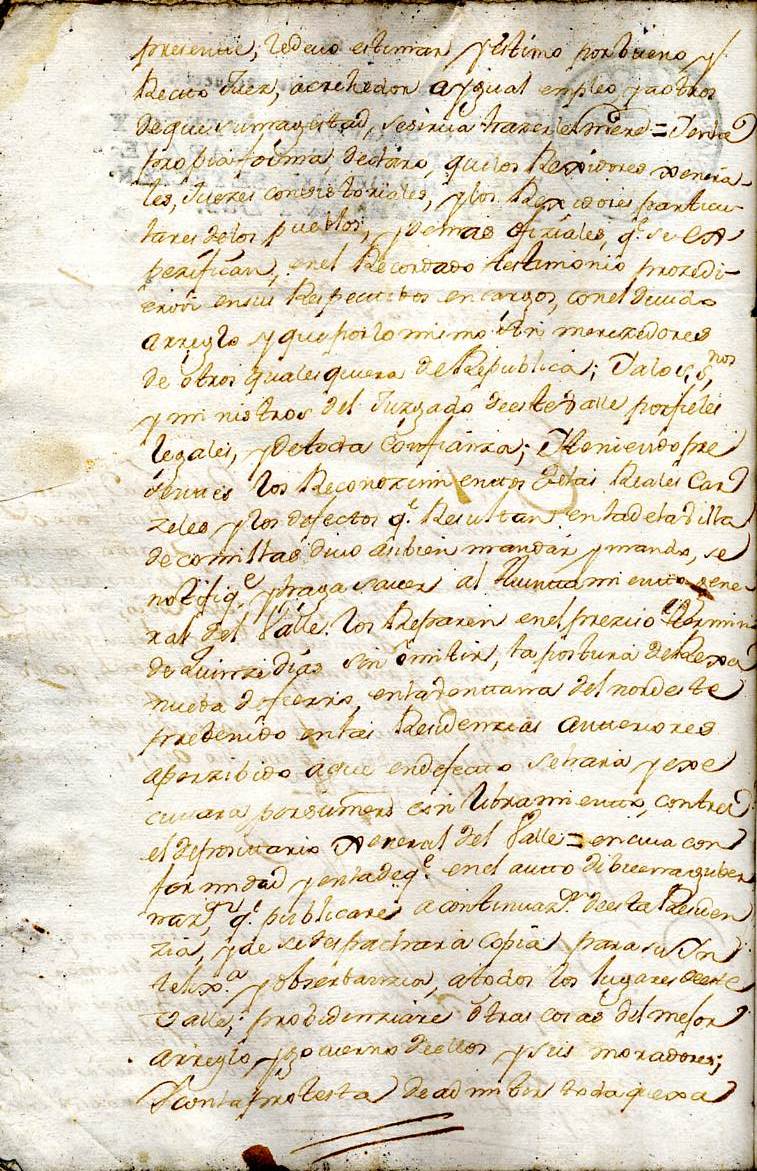 presente, devio estimar y estimo por bueno y
Recto Juez, acrehedor a ygual empleo y a otros
de que su magestad, se sirva hazerle mrd = Y en la
propia forma, declaro, que los Rexidores xenera-
les, Juezes consistoriales, y los Rexidores particu-
lares de los pueblos, y demas ofiziales, q.e se ex
pezifican, en el Recordado testimonio prozedi-
eron en sus Respectibos encargos, con el devido
arreglo y que por lo mismo son merezedores
de otros qualesquiera de Republica; Y a los SS.nos
y ministros del Juzgado de este Valle por fieles
legales, y de toda confianza; Y teniendo pre
sentes los Reconozimientos de las Reales Car
zeles y los defectos q.e Resultan en la de la Villa
de comillas devio asi bien mandar y mando, se
notifiq.e y haga saver al Aiuntamiento gene
ral del Valle los Reparen en el prezisso termin
de quinze dias sin omitir, la postura de Rexa
nueba de fierro, en la bentana del nordeste
prebenido en las Residenzias anteriores
aperzibido a que en defecto se hara y exe
cutara por su mrd con libramiento, contra
el depositario General del Valle = en cuia con
formidad y en la de q.e en el auto de buena guber
naz.on q.e publicare a continuaz.on de esta Residen
zia, y de se despachara copia para su In
telix.a y obserbanzia, a todos los lugares de este
Valle; probidenziare otras cosas del mejor
arreglo y govierno de ellos y sus moradores;
Y con la protesta de admitir toda quexa